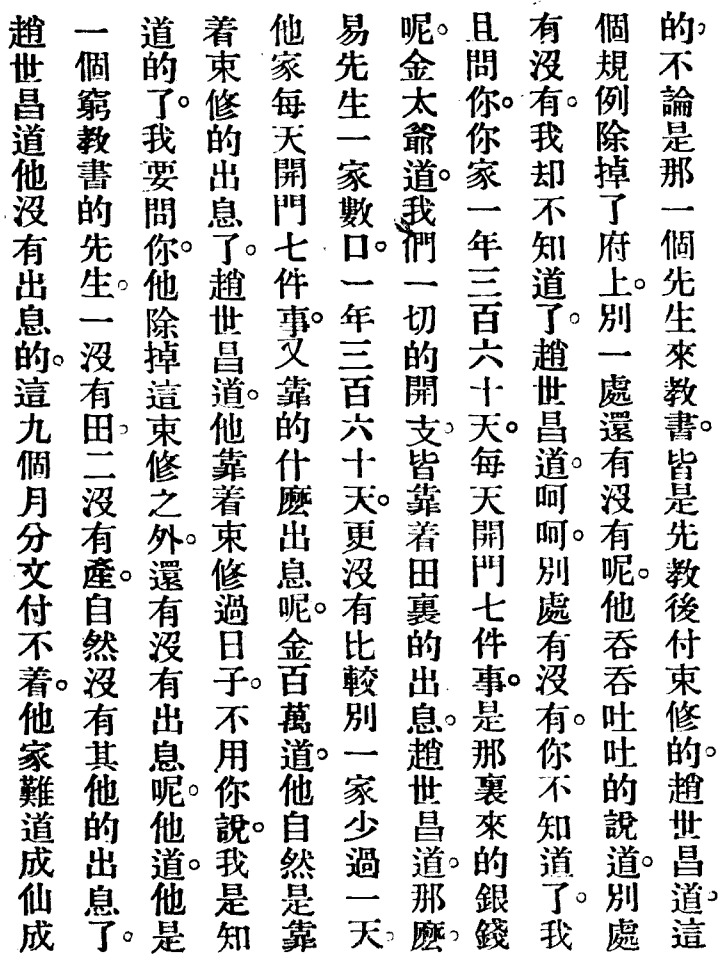 的。不論是那一個先生來教書。皆是先教後付束修的。趙世昌道。這
個規例除掉了府上。別一處還有沒有呢。他吞吞吐吐的說道。別處
有沒有。我却不知道了。趙世昌道。呵呵。別處有沒有。你不知道了。我
且問你。你家一年三百六十天。每天開門七件事。是那裏來的銀錢
呢。金太爺道。我們一切的開支。皆靠着田裏的出息。趙世昌道。那麽。
易先生一家數口。一年三百六十天。更沒有比較別一家少過一天。
他家每天開門七件事。又靠的什麽出息呢。金百萬道。他自然是靠
着束修的出息了。趙世昌道。他靠着束修過日子。不用你說。我是知
道的了。我要問你。他除掉這束修之外。還有沒有出息呢。他道。他是
一個窮教書的先生。一沒有田。二沒有產。自然沒有其他的出息了。
趙世昌道他沒有出息的。這九個月分文付不着。他家難道成仙成